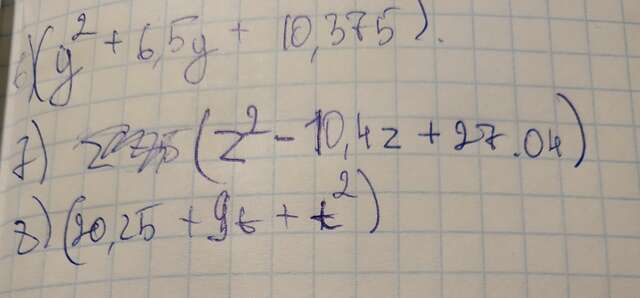 6)(y² + 6,5y + 10,375).
7) (z² - 10,4z + 27.04)
8) (20,25 + 9t + t²)